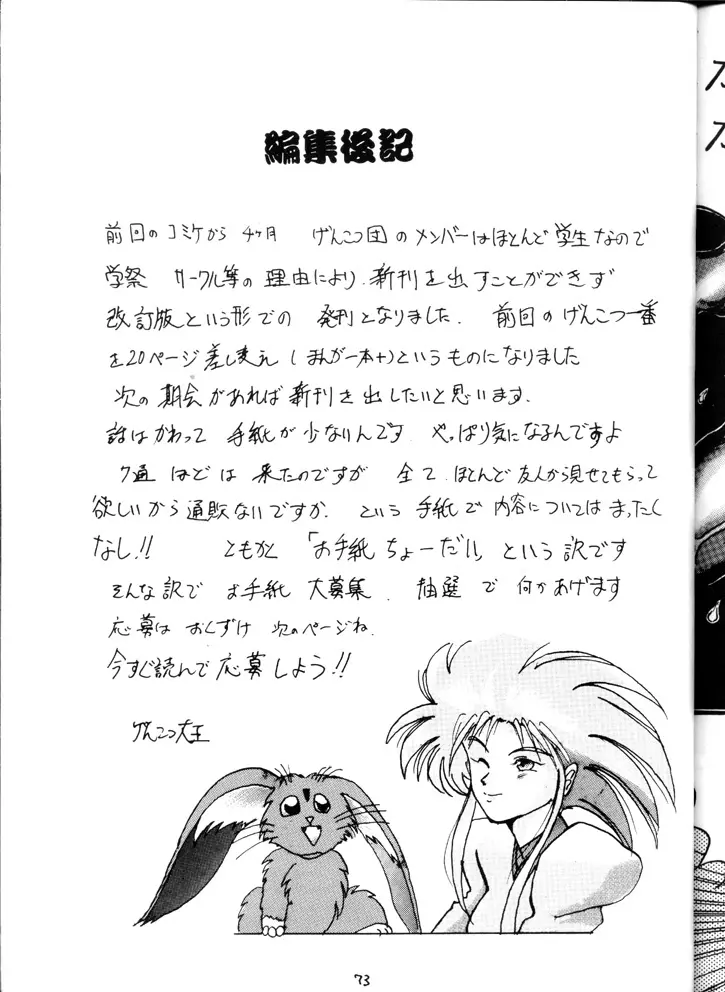 編集後記
前回のコミケから 4ヶ月 げんこつ団のメンバーはほとんど学生なので
学祭 サークル等の理由により、新刊を出すことができず
改訂版という形での 発刊となりました. 前回のげんこつ一番
を20ページ差し変え (まんが一本+)というものになりました
次の期会があれば新刊を出したいと思います.
話はかわって 手紙が少ないんです やっぱり気になるんですよ
7通 ほどは 来たのですが 全て、ほとんど友人から見せてもらって
欲しいから通販ないですか. という 手紙で内容についてはまったく
なし!! ともかく「お手紙ちょーだい」という訳です
そんな訳で お手紙 大募集. 抽選で何かあげます
応募は おくずけ 次のページね.
今すぐ読んで応募しよう!!
げんこつ大王
73